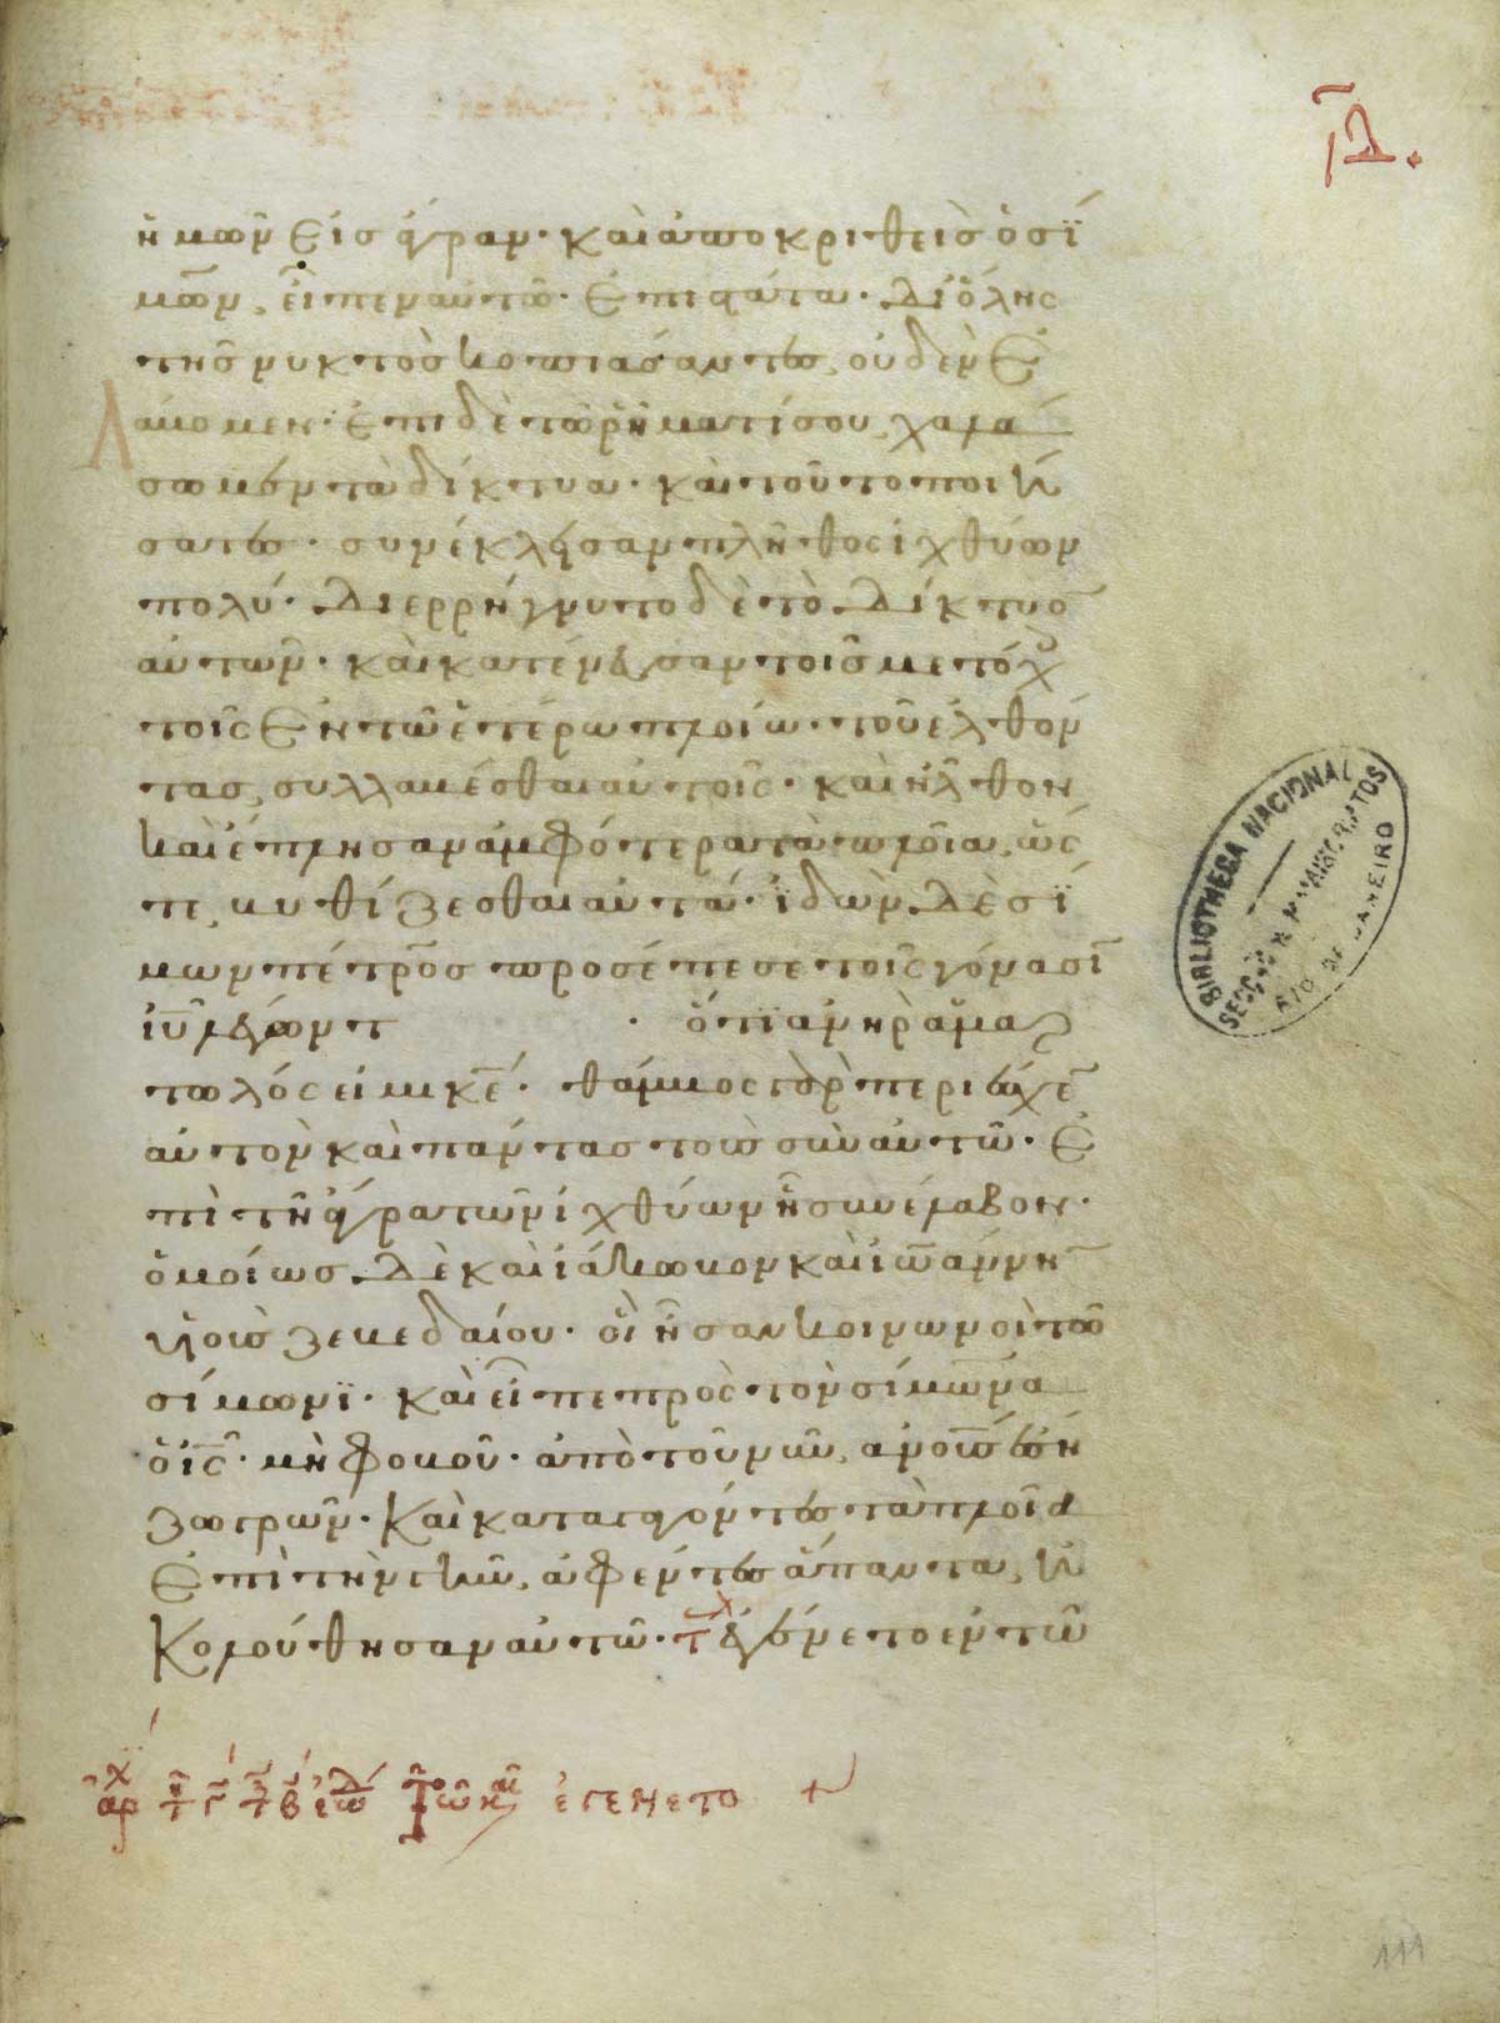 ιδ.
ὑμῶν εἰς ἄγραν· καὶ ἀποκριθεὶς ὁ σί
μων, εἶπεν αὐτῶ· ἐπιστάτα· δι ὅλης
τῆς νυκτὸς κοπιάσαντες, οὐδὲν ἐ
λάβομεν· ἐπὶ δὲ τῶ ῥήματί σου, χαλά
σωμεν τὰ δίκτυα· καὶ τοῦτο ποιή
σαντες· συνέκλεισαν πλῆθος ἰχθύων
πολύ· διερρήγνυτο δὲ τὸ δίκτυο
αὐτῶν· καὶ κατένευσαν τοῖς μετόχοις
τοῖς ἐν τῶ ἑτέρω πλοίω· τοῦ ἐλθόν
τας, συλλαβέσθαι αὐτοῖς· καὶ ἦλθον
καὶ ἔπλησαν ἀμφότερα τὰ πλοῖα, ὥς
τε βυθίζεσθαι αὐτά· ἰδὼν δὲ σί
μων πέτρος προσέπεσε τοῖς γόνασι
ἰυ λέγων· ὅτι ἀνὴρ ἁμαρ
τωλός εἰμι κε· θάμβος γὰρ περιέσχε
αὐτὸν καὶ πάντας τοὺς σὺν αὐτῶ· ἐ
πὶ τῆ ἄγρα τῶν ἰχθύων ἧ συνέλαβον·
ὁμοίως δὲ καὶ ἰάκωβον καὶ ἰωάννη
υἱοὺς ζεβεδαίου· οἳ ἦσαν κοινωνοὶ τῶ
σίμωνι· καὶ εἶπε πρὸς τὸν σίμωνα
ὁ ις· μὴ φοβοῦ· ἀπὸ τοῦ νῦν, ἀνους ἔση
ζωγρῶν· καὶ καταγαγόντες τὰ πλοῖα
ἐπὶ τὴν γῆν, ἀφέντες ἅπαντα, ἠ
κολούθησαν αὐτῶ· τλ ἐγένετο ἐν τῶ
ἐγένετο
BIBLIOTHECA NACIONAL
RIO DE JANEIRO
111